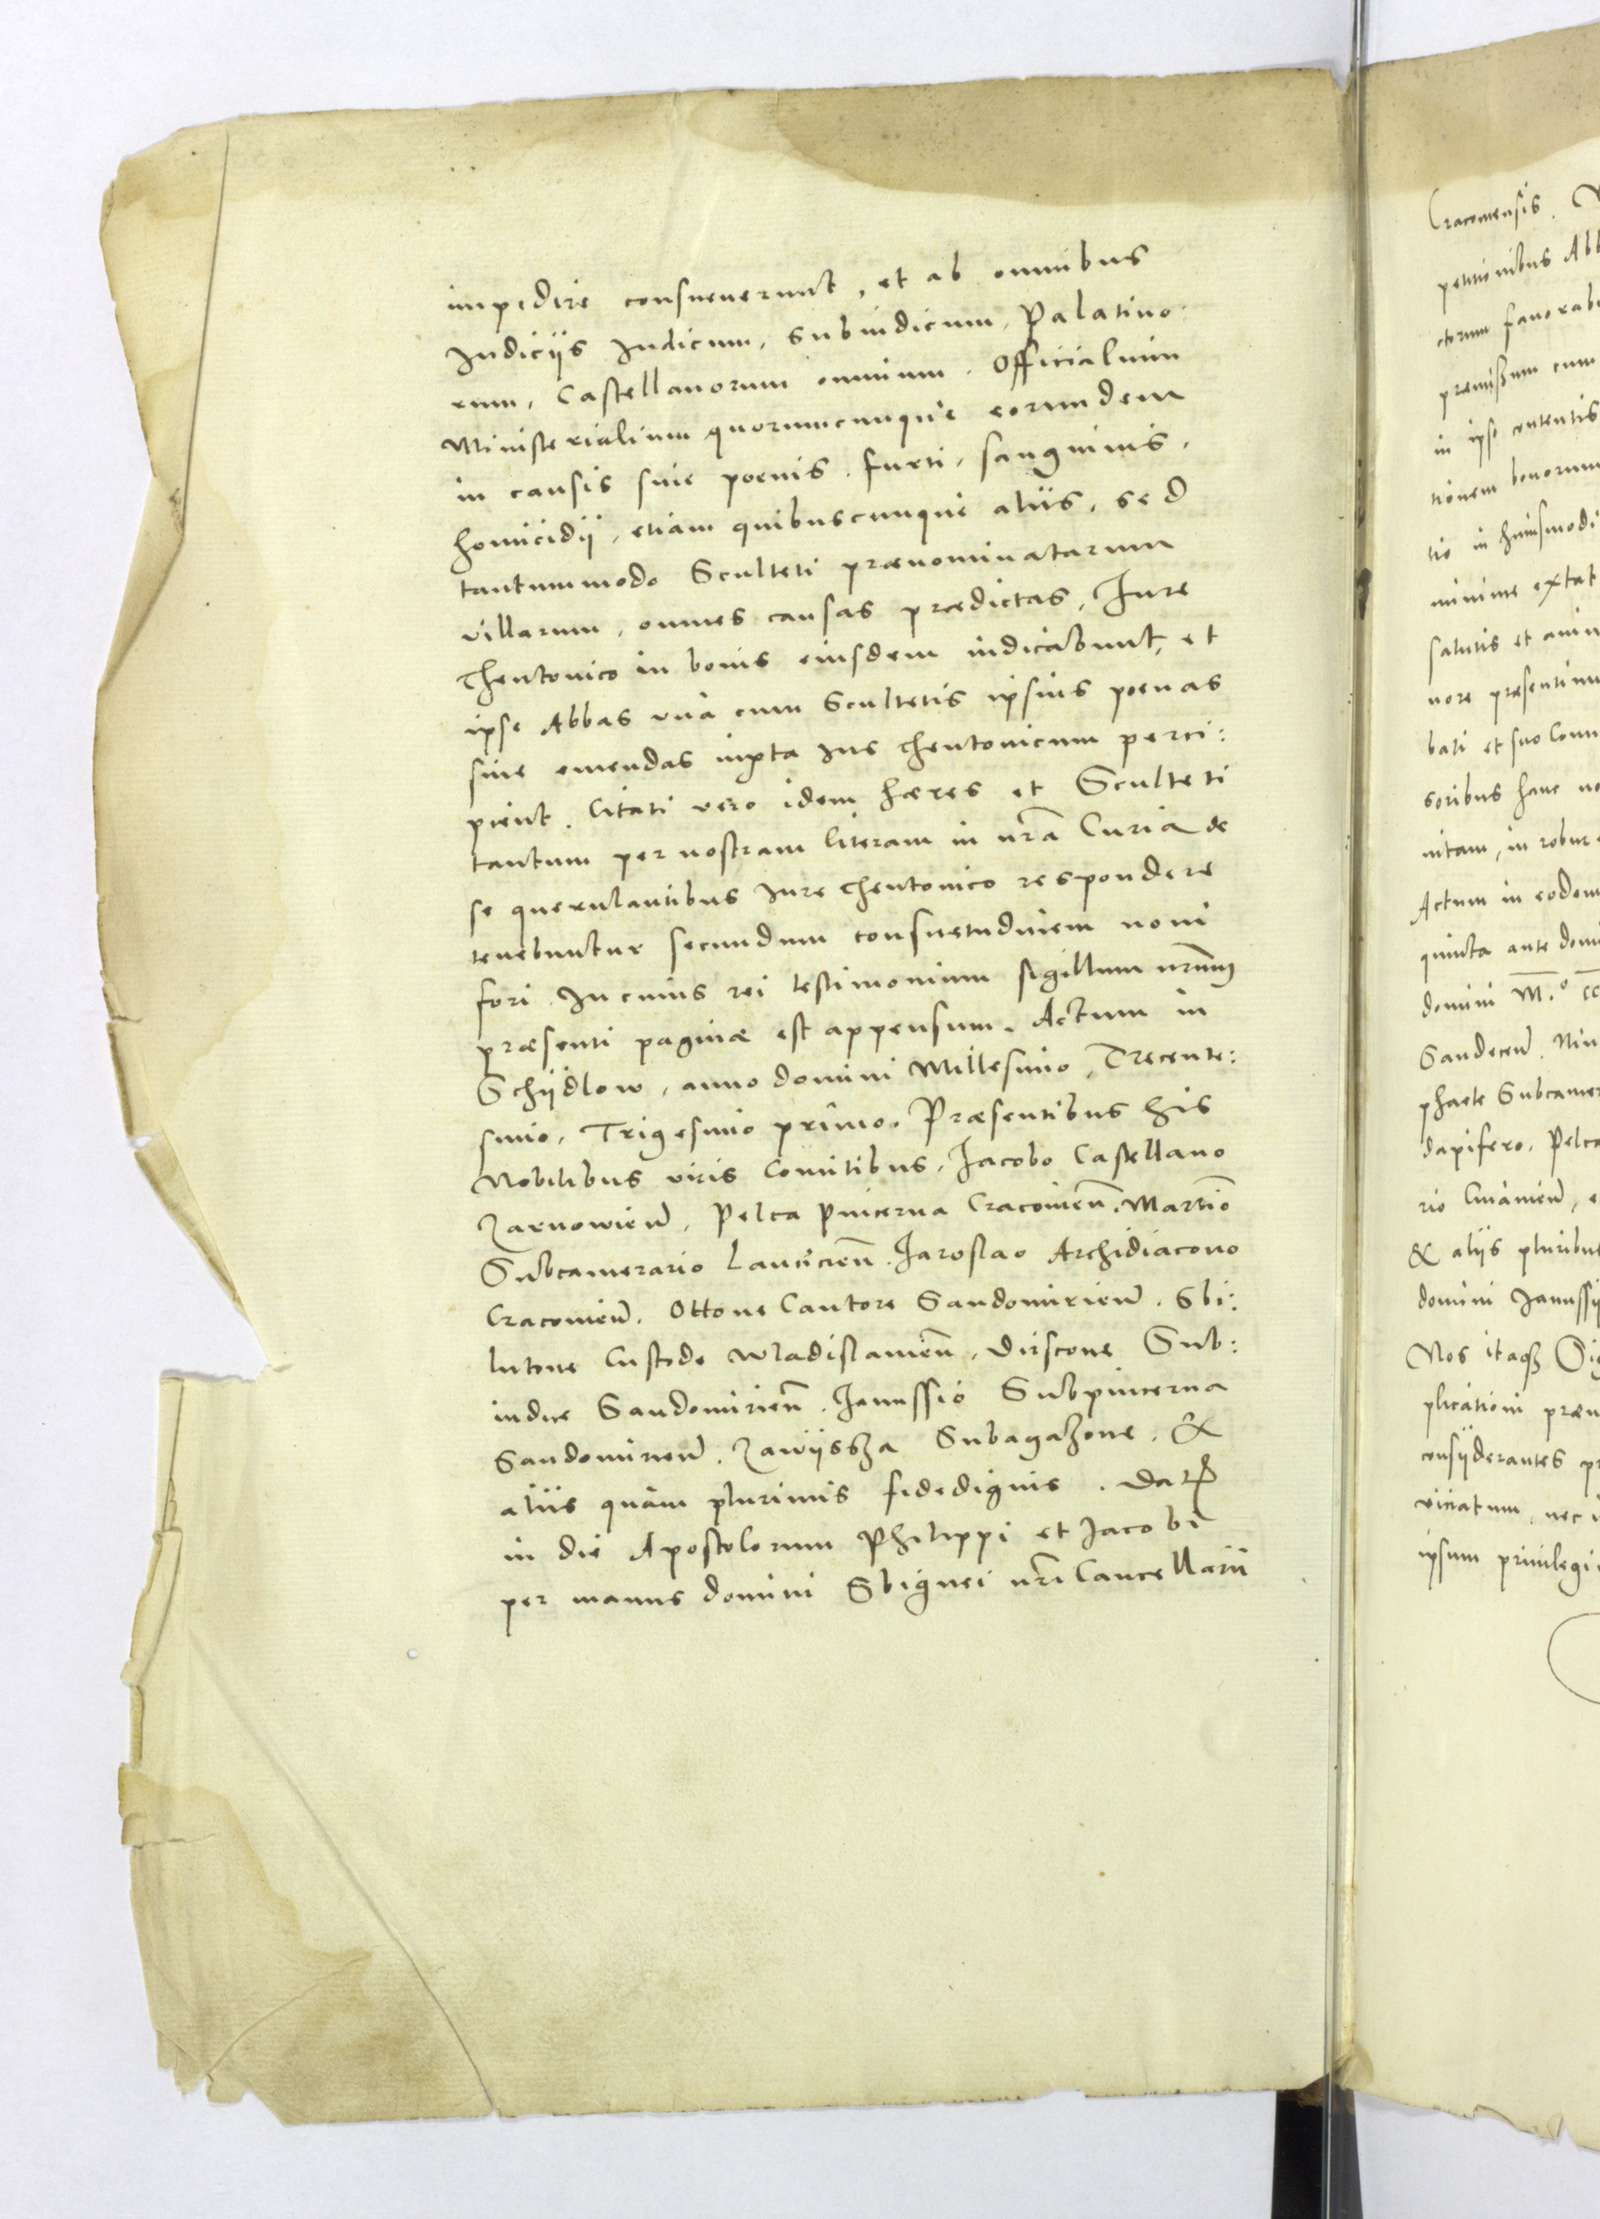 impedire consueuerunt, et ab omnibus
Judicijs Judicum, Subiudicum, Palatino-
rum, Castellanorum omnium, Officialium
Ministerialium quorumcunque eorundem
in causis siue poenis, furti, sanguinis,
homicidij, etiam quibuscunque aliis, sed
tantummodo Sculteti prænominatarum
villarum, omnes causas prædictas, Jure
Theutonico in bonis eiusdem iudicabunt, et
ipse Abbas vna cum Scultetis ipsius poenas
siue emendas iuxta Jus Theutonicum perci:
pient. Citati vero idem hæres et Sculteti
tantum per nostram literam in nrã Curia de
se querulantibus Jure Theutonico respondere
tenebuntur secundum consuetudinem noui
fori. In cuius rei testimonium sigillum nrm̃
præsenti paginæ est appensum. Actum in
Schÿdlow, anno domini Millesimo, Trecente:
simo, Trigesimo primo. Præsentibus his
Nobilibus viris Comitibus, Jacobo Castellano
Zarnowień, Pelca Pincerna Cracouień, Martiō
Subcamerario Lancicień, Jaroslao Archidiacono
Cracouień, Ottone Cantore Sandomirień, Sbi:
lutone Custode Wladislauień, Dirscone Sub:
iudice Sandomirień, Janussio Subpincerna
Sandomirień, Zawÿssza Subagazone, &
aliis quàm plurimis fidedignis. Dat͂
in die Apostolorum Philippi et Jacobi
per manus domini Sbignei nri Cancellarii
Cracouiensis.
petitionibus Abb
ctorum fauorab
præmissum cum
in ipso contentis
tionem bonorum
tio in huiusmodi
minime extat
salutis et anim
nore præsentium
bati et suo Conu
soribus hanc no
nitam, in robur
Actum in eodem
quinta ante domi
domini M.º cc
Sandeceń. Nin
phaele Subcamer
dapifero, Pelca
rio Cuiauień, e
& aliis pluribus
domini Janussij
Nos itaqȝ Sig
plicationi præn
consÿderantes pr
viciatum, nec i
ipsum priuilegi